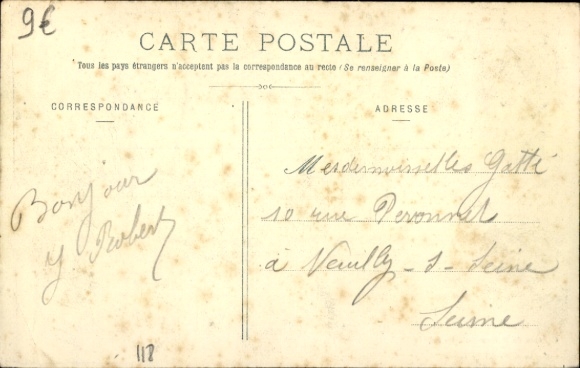 9€
CARTE POSTALE
Tous les pays étrangers n'acceptent pas la correspondance au recto (Se renseigner à la Poste)
CORRESPONDANCE
ADRESSE
Bonjour
Robert
Mesdemoiselles Gatté
10 rue Peronnet
à Neuilly-s-Seine
Seine
118